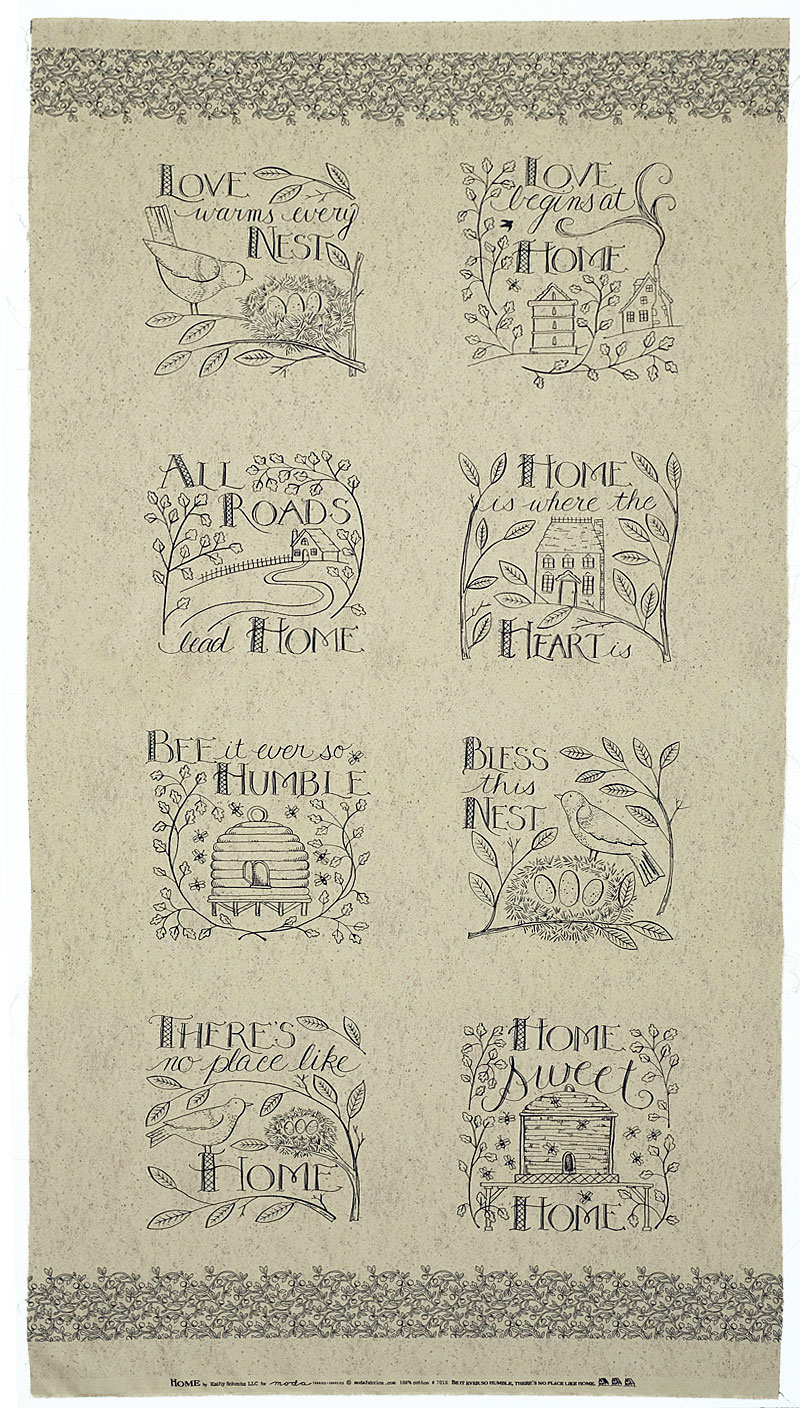 LOVE
warms every
NEST
LOVE
begins at
HOME
ALL
ROADS
lead HOME
HOME
is where the
HEART is
BEE it ever so
HUMBLE
BLESS
this
NEST
THERE'S
no place like
HOME
HOME
sweet
HOME
HOME by Kathy Schmitz LLC for moda © modafabrics.com 100% cotton # 7010 BE IT EVER SO HUMBLE, THERE'S NO PLACE LIKE HOME.